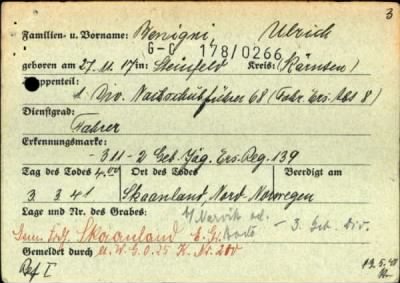 3
Familien- u. Vorname: Benigni, Ulrich
G-C 178/0266
geboren am 27.11.17 in: Steinfeld Kreis: (Kärnten)
Truppenteil:
d. Div. Nachschubführer 68 (Fahr. Ers. Abt 8)
Dienstgrad:
Fahrer
Erkennungsmarke:
-311-2 Geb. Jäg. Ers. Reg. 139
Tag des Todes 4.00 Ort des Todes Beerdigt am
3. 3. 41 Skaanland, Nord Norwegen
Lage und Nr. des Grabes: b/ Narvik od.
- 3. Geb. Div.
Skaanland E. Gr.
Gemeldet durch
Ref I